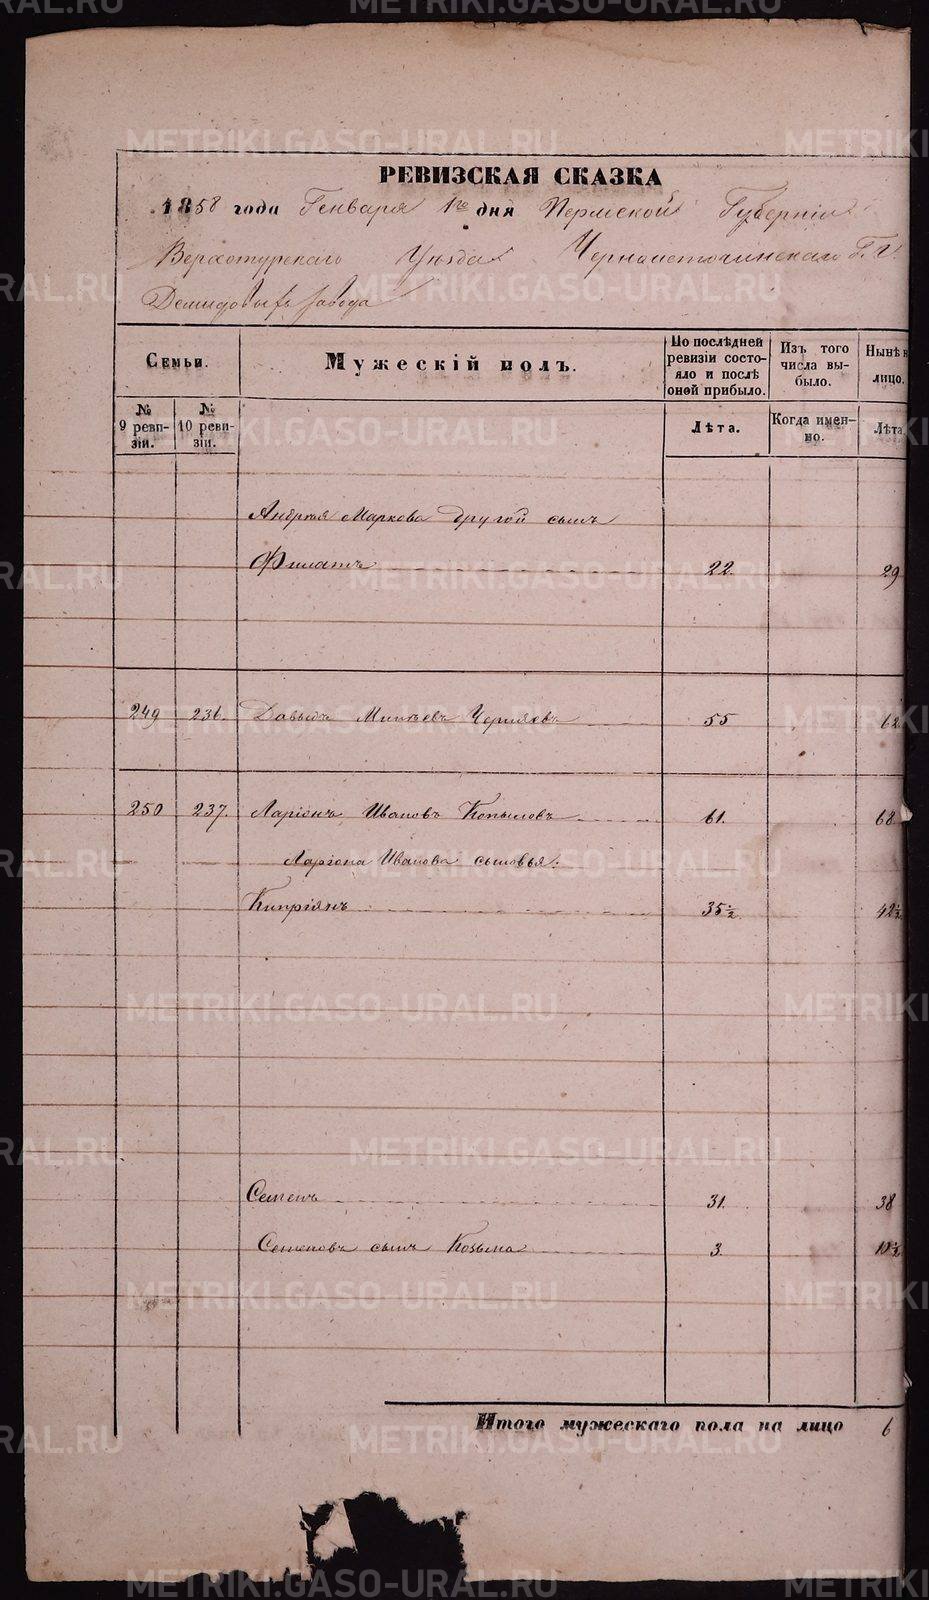 РЕВИЗСКАЯ СКАЗКА
1858 года Генваря 1го дня Пермской Губерніи
Верхотурскаго Уѣзда Черноисточинскаго Г.Г.
Демидовыхъ завода
Семьи.
Мужескій полъ.
По послѣдней ревизіи состояло и послѣ оной прибыло.
Изъ того числа выбыло.
Нынѣ н
лицо.
№ 9 ревизіи.
№ 10 ревизіи.
Лѣта.
Когда именно.
Лѣта
Андрея Маркова другой сынъ
Филатъ 22. 29
249 236. Давыдъ Минѣевъ Черняевъ 55 62
250 237. Ларіонъ Ивановъ Копыловъ 61. 68
Ларіона Иванова сыновья:
Кипріянъ 35½ 42½
Семенъ 31. 38
Семеновъ сынъ Козьма 3 10½
Итого мужескаго пола на лицо 6
METRIKI.GASO-URAL.RU